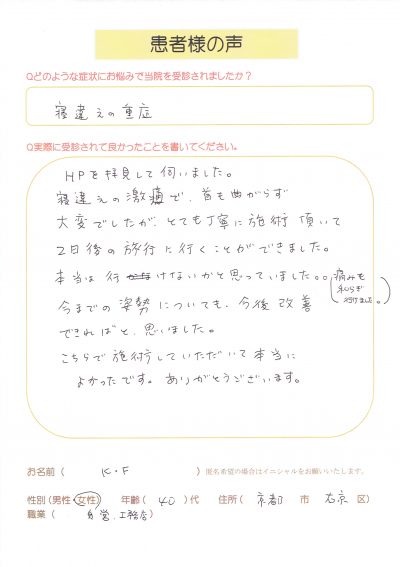 患者様の声
Qどのような症状にお悩みで当院を受診されましたか?
寝違えの重症
Q実際に受診されて良かったことを書いてください。
HPを拝見して伺いました。
寝違えの激痛で、首も曲がらず
大変でしたが、とても丁寧に施術頂いて
2日後の旅行に行くことができました。
本当は行けないかと思っていました。。(痛みも和らぎ行けました。)
今までの姿勢についても、今後改善
できればと、思いました。
こちらで施術していただいて本当に
よかったです。ありがとうございます。
お名前( K・F )匿名希望の場合はイニシャルをお願いいたします。
性別(男性・女性) 年齢( 40 )代 住所( 京都 市 右京 区)
職業( 自営、工務店)